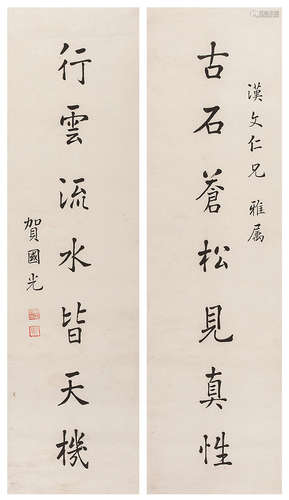 漢文仁兄 雅屬
古石蒼松見真性
行雲流水皆天機
賀國光